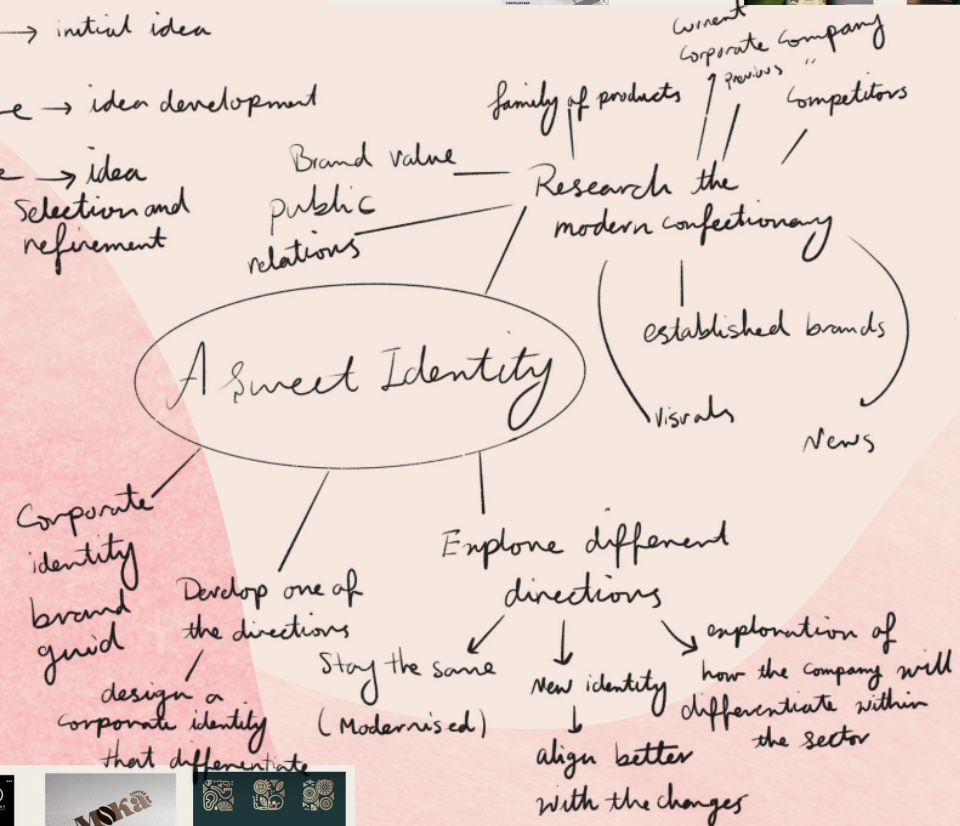 → initial idea
e → idea development
e → idea
Selection and
refinement
Current
Corporate Company
previous "
Competitors
family of products
Brand value
public
relations
Research the
modern confectionary
established brands
visuals
News
A Sweet Identity
Corporate
identity
brand
guid
Develop one of
the directions
design a
corporate identity
that differentiate
Explore different
directions
Stay the same
(Modernised)
New identity
align better
with the changes
exploration of
how the company will
differentiate within
the sector
COFFEE BAR
Moka